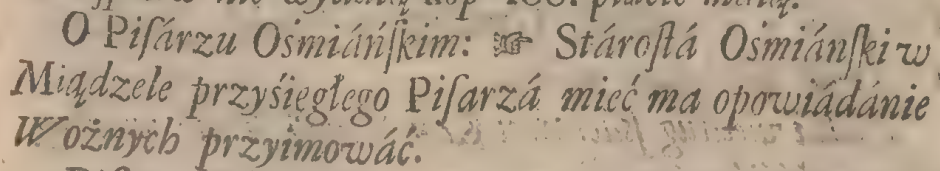 O Piſárzu Osmiáńſkim: ☞ Stároſtá Osmiánſki w
Miądzele przyśięgłego Piſarzá mieć ma opowiádánie
Woźnych przyimowáć.